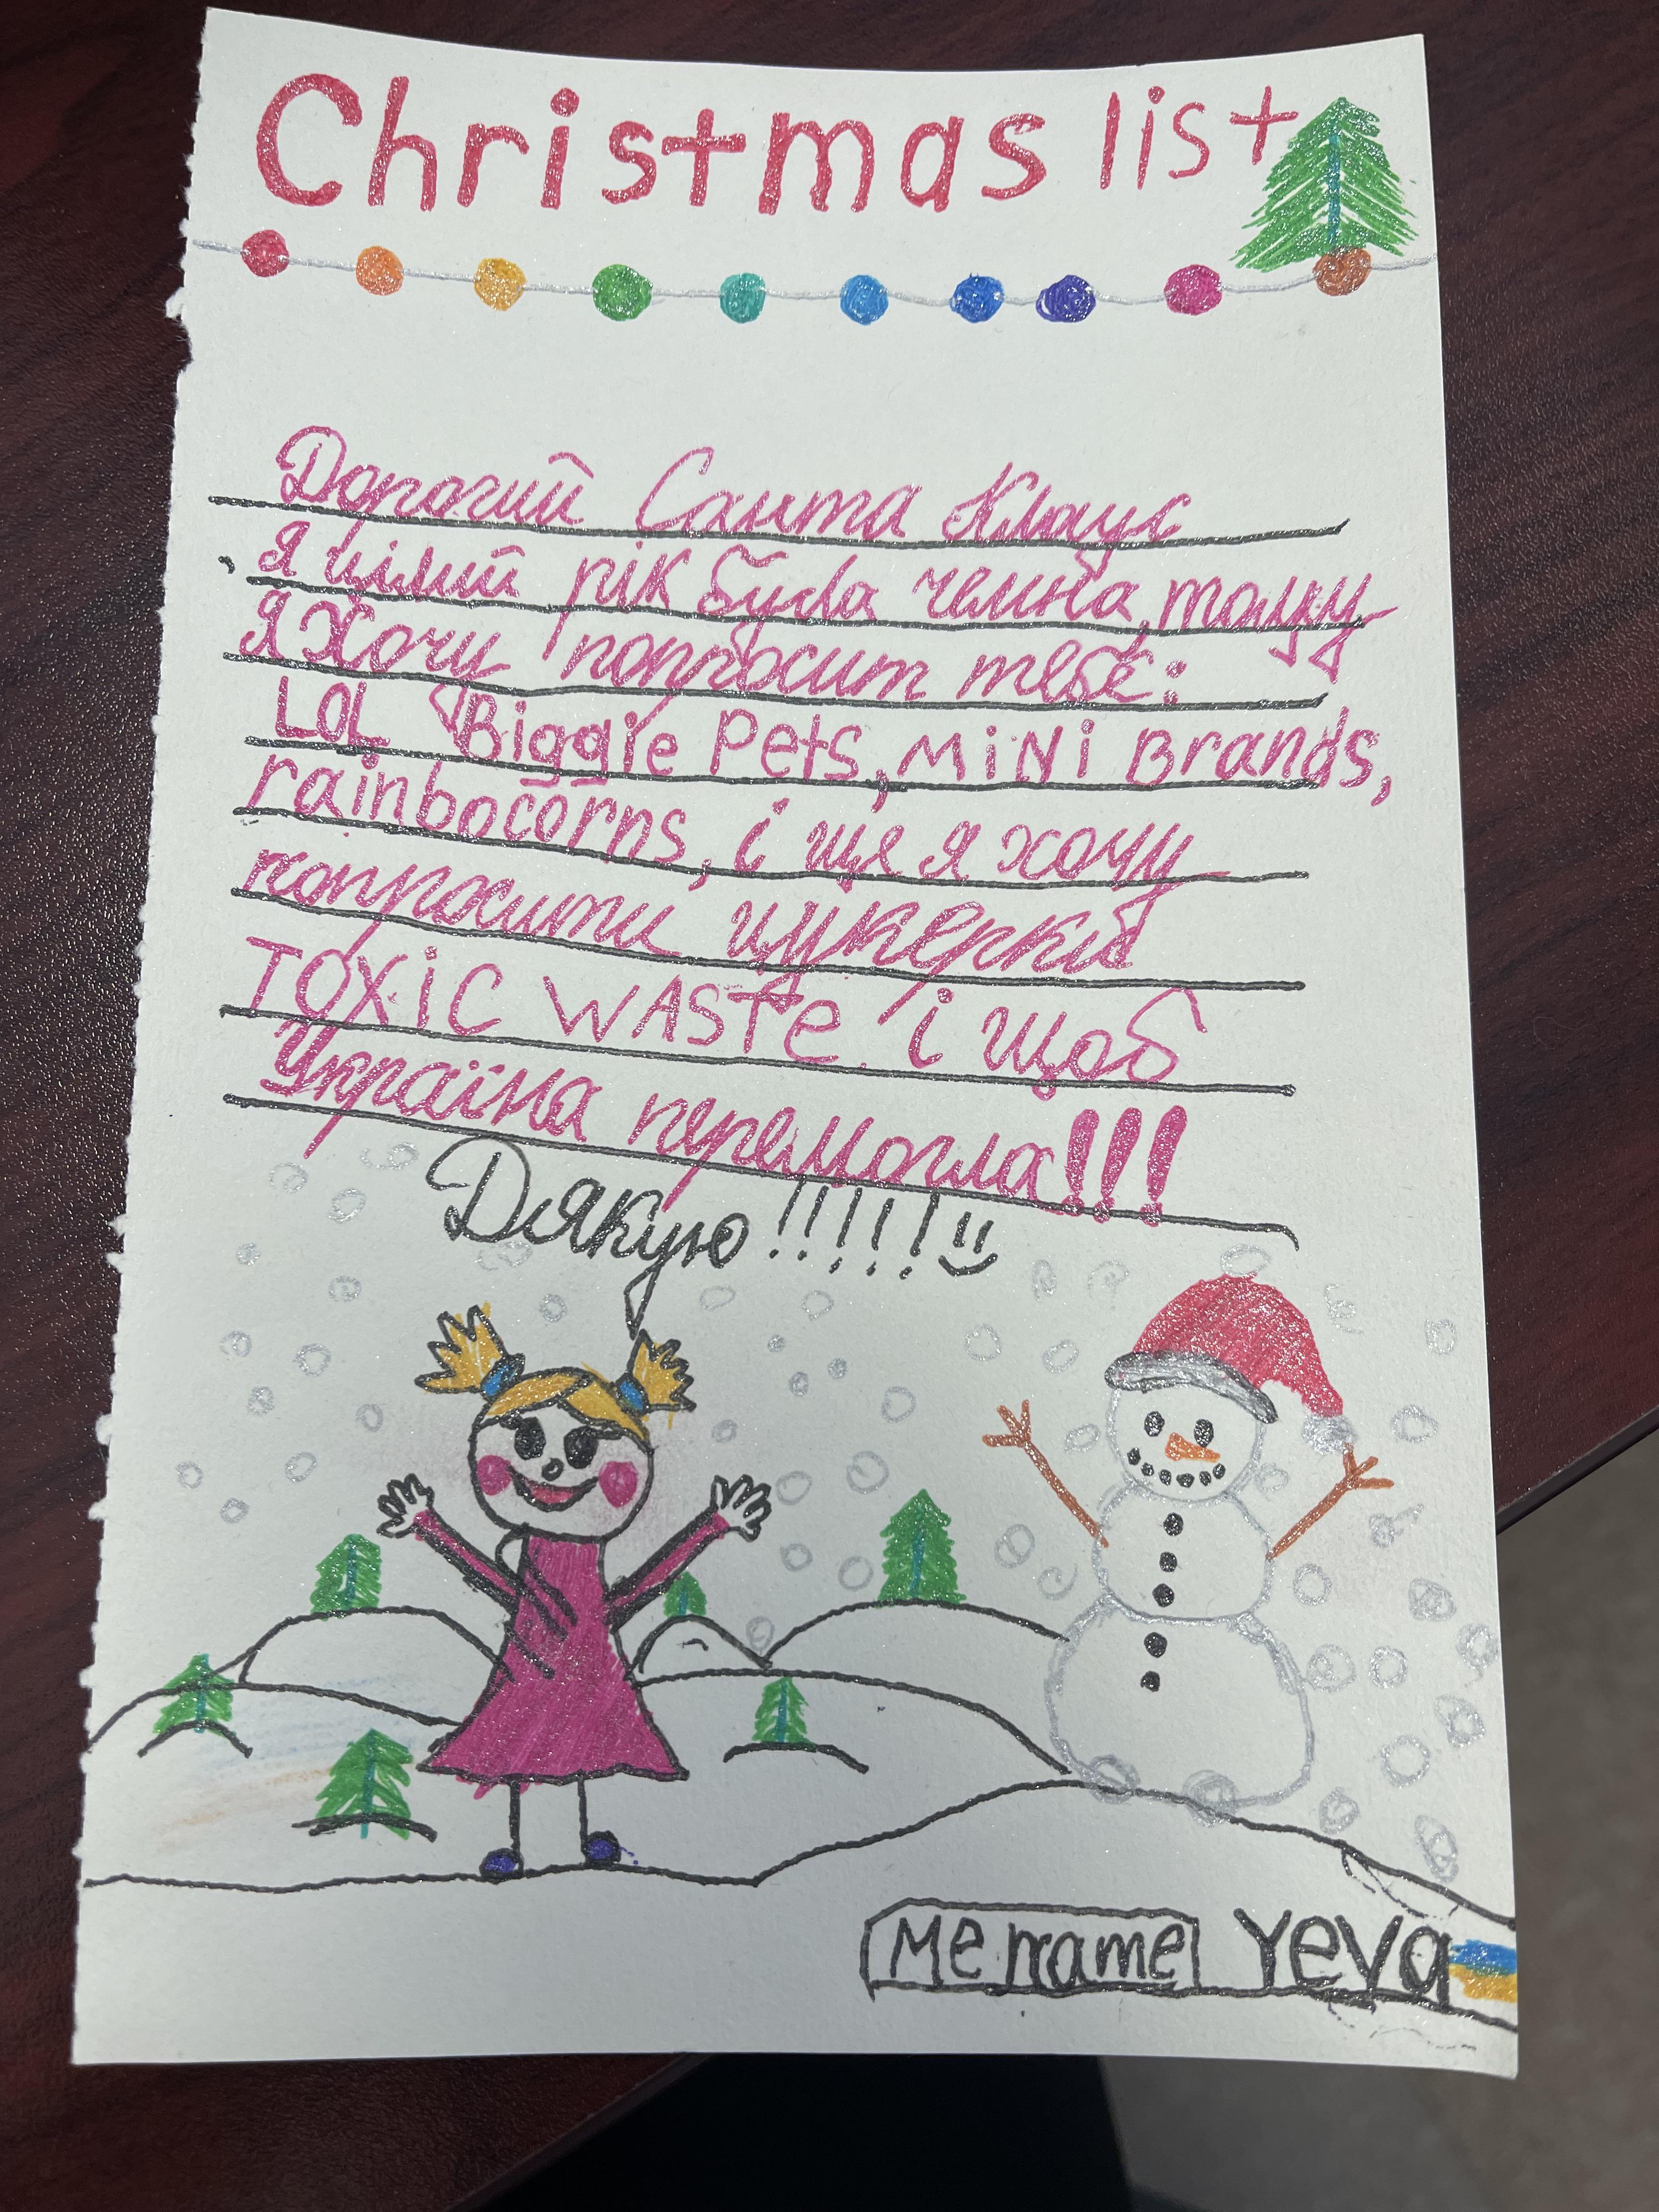 Christmas list
Дорогий Санта Клаус
я цілий рік була чемна, тому
я хочу попросит тебе:
LOL Biggie Pets, MiNi Brands,
rainbocorns, і ще я хочу
попросити цукерків
TOXiC WASTe і щоб
Україна перемогла!!!
Дякую!!!!!
Me name Yeva